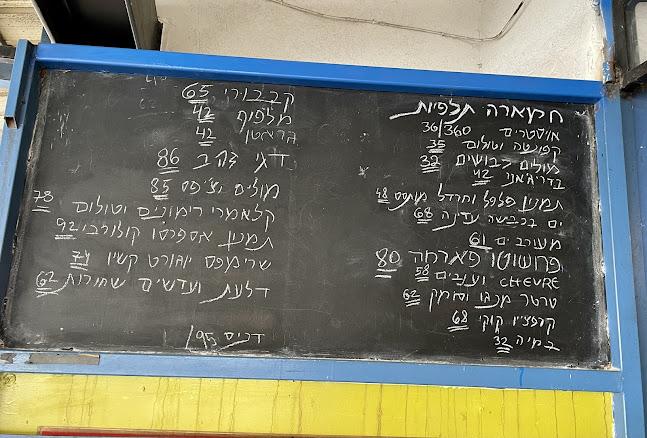 חמארה תלפיות
אוסטרים 36/360
קפונטה וטולום 35
מולים כבושים 32
בדריג'אני 42
תמנון פלפל וחרדל מותסס 48
ים בכבישה עדינה 68
מעורבים 61
פרושוטו פארחה 80
CHEVRE וענבים 58
טרטר מנגו וסומק 62
קרפציו קוקי 68
במיה 32
קבבורי 65
מלפוף 42
גראטן 42
דגי זהב 86
מולים וצ'יפס 85
קלאמרי רימונים וטולום 73
תמנון אספרסו קולורבי 92
שרימפס יוגורט קשיו 74
דלעת ועדשים שחורות 62
דניס 95/